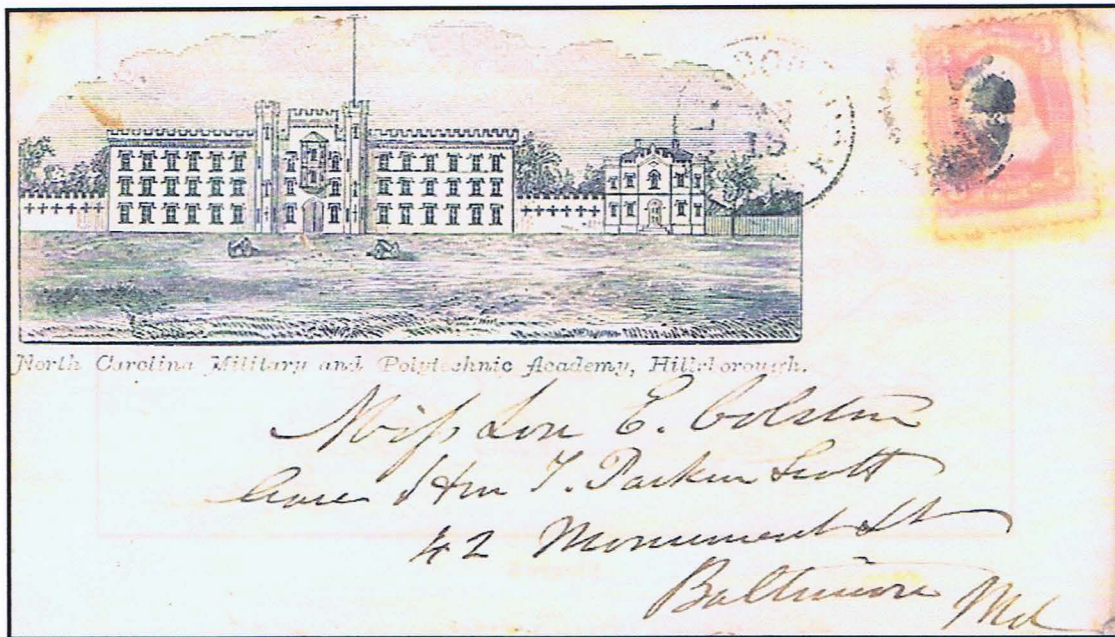 North Carolina Military and Polytechnic Academy, Hillsborough.
Miss Lou E. Colston
Care of Hon T. Parkin Scott
42 Monument St
Baltimore Md